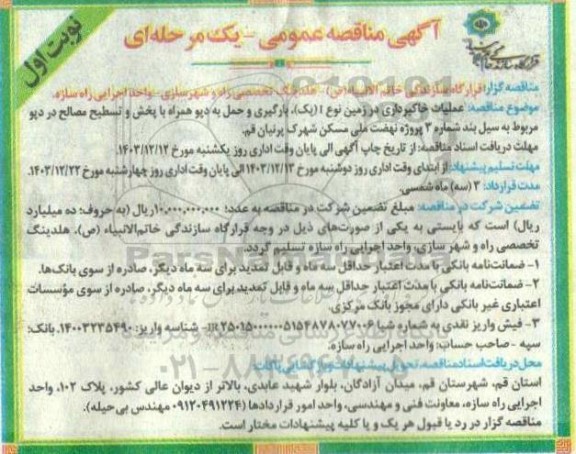 نوبت اول
آگهی مناقصه عمومی - یک مرحله‌ای
قرارگاه سازندگی خاتم الانبیاء
مناقصه گزار: قرارگاه سازندگی خاتم الانبیاء (ص) - هلدینگ تخصصی راه و شهرسازی - واحد اجرایی راه سازه.
موضوع مناقصه: عملیات خاکبرداری در زمین نوع I (یک)، بارگیری و حمل به دپو همراه با پخش و تسطیح مصالح در دپو
مربوط به سیل بند شماره ۳ پروژه نهضت ملی مسکن شهرک پرنیان قم.
مهلت دریافت اسناد مناقصه: از تاریخ چاپ آگهی الی پایان وقت اداری روز یکشنبه مورخ ۱۴۰۳/۱۲/۱۲.
مهلت تسلیم پیشنهاد: از ابتدای وقت اداری روز دوشنبه مورخ ۱۴۰۳/۱۲/۱۳ الی پایان وقت اداری روز چهارشنبه مورخ ۱۴۰۳/۱۲/۲۲.
مدت قرارداد: ۳ (سه) ماه شمسی.
تضمین شرکت در مناقصه: مبلغ تضمین شرکت در مناقصه به عدد؛ ۱۰,۰۰۰,۰۰۰,۰۰۰ ریال (به حروف؛ ده میلیارد
ریال) است که بایستی به یکی از صورت‌های ذیل در وجه قرارگاه سازندگی خاتم‌الانبیاء (ص)، هلدینگ
تخصصی راه و شهر سازی، واحد اجرایی راه سازه تسلیم گردد.
۱- ضمانت‌نامه بانکی با مدت اعتبار حداقل سه ماه و قابل تمدید برای سه ماه دیگر، صادره از سوی بانک‌ها.
۲- ضمانت‌نامه بانکی با مدت اعتبار حداقل سه ماه و قابل تمدید برای سه ماه دیگر، صادره از سوی مؤسسات
اعتباری غیر بانکی دارای مجوز بانک مرکزی.
۳- فیش واریز نقدی به شماره شبا IR ۲۵۰۱۵۰۰۰۰۰۵۱۵۴۸۷۸۰۷۷۰۰۶ - شناسه واریز: ۱۴۰۰۳۲۳۵۴۹۰. بانک:
سپه - صاحب حساب: واحد اجرایی راه سازه.
محل دریافت اسناد مناقصه، تحویل پیشنهادات و بازگشایی پاکات:
استان قم، شهرستان قم، میدان آزادگان، بلوار شهید عابدی، بالاتر از دیوان عالی کشور، پلاک ۱۰۲، واحد
اجرایی راه سازه، معاونت فنی و مهندسی، واحد امور قراردادها (۰۹۱۲۰۴۹۱۲۲۴ مهندس بی‌حیله).
مناقصه گزار در رد یا قبول هر یک و یا کلیه پیشنهادات مختار است.
ParsNamadData